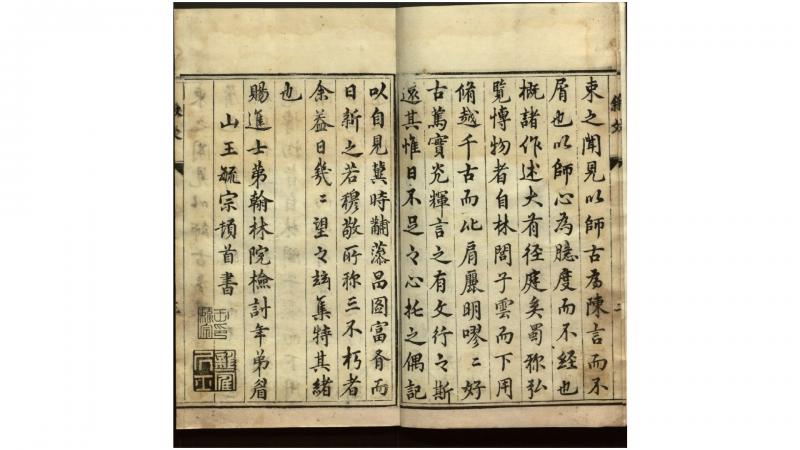 束之聞見以師古為陳言而不
屑也以師心為臆度而不經也
概諸作述大有徑庭矣蜀称弘
覽博物者自林閭子雲而下用
脩越千古而比肩麗明嘐〻好
古篤實光輝言之有文行〻斯
遠其惟日不足〻心托之偶記
以自見冀時黼藻品圖富胥而
日新之若穆敬所称三不朽者
余益日幾〻望〻玆集特其緒
也
賜進士弟翰林院檢討年弟眉
山王毓宗頓首書